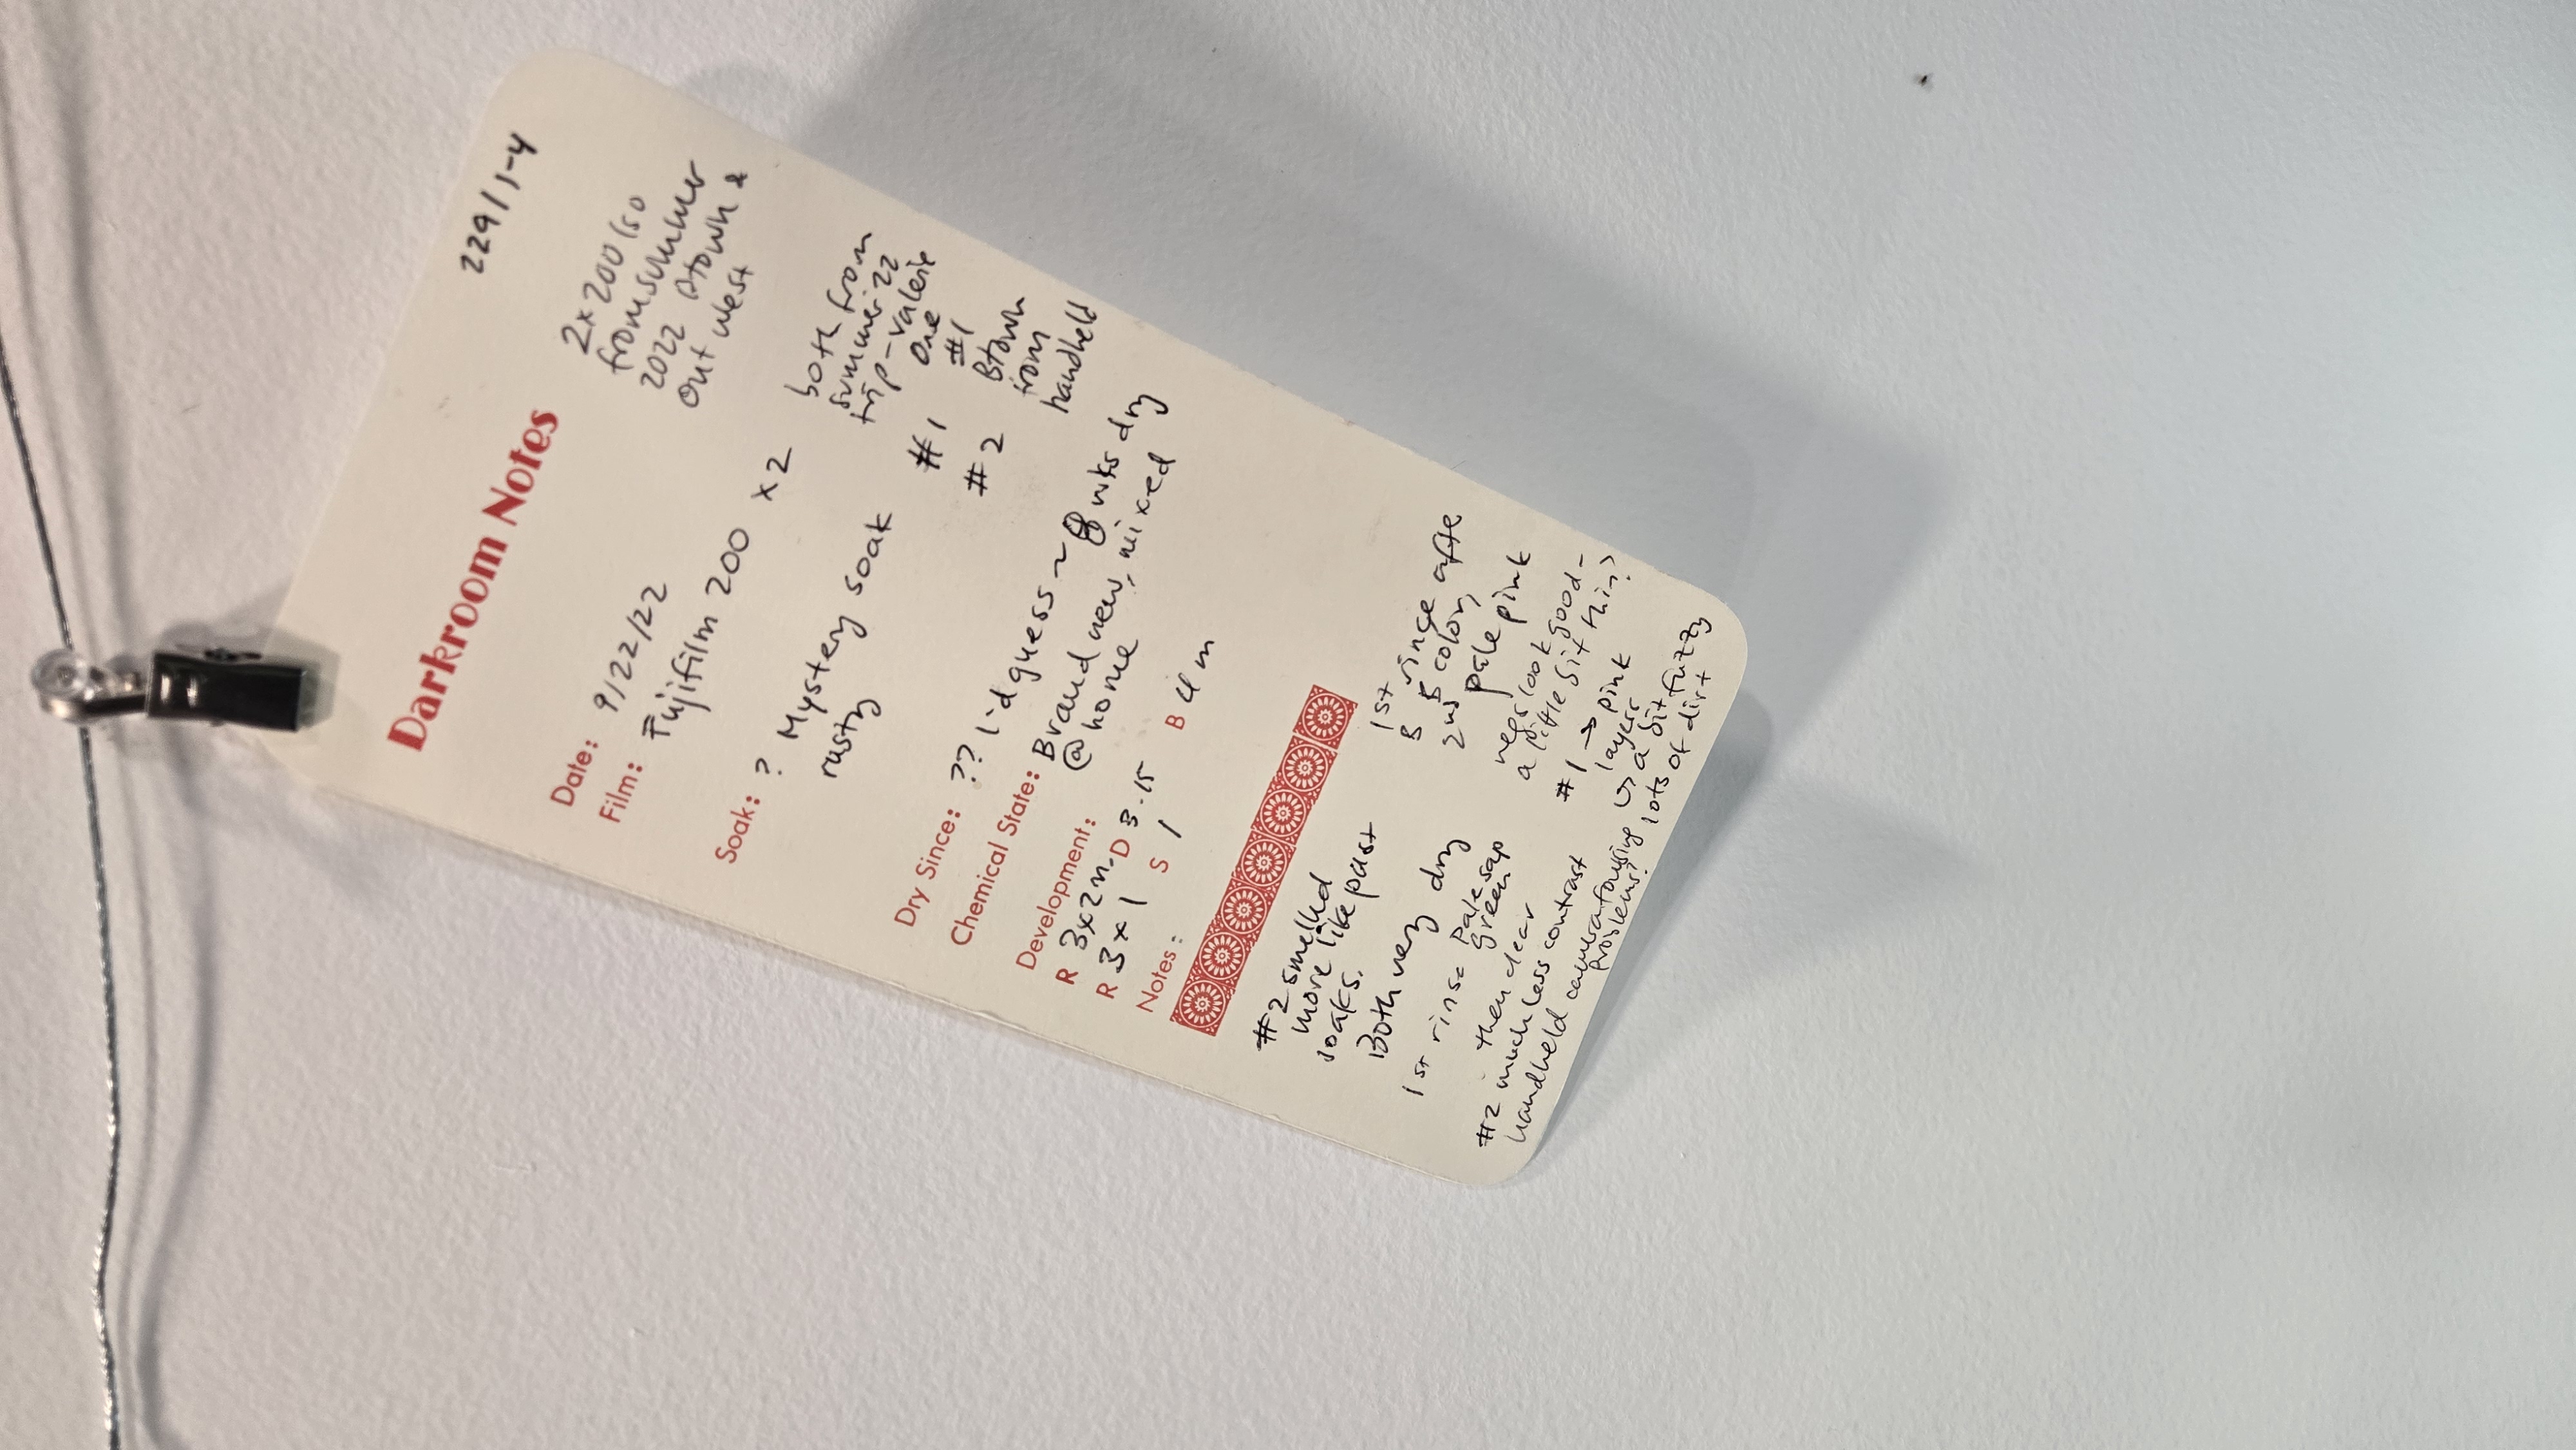 229/1-4
Darkroom Notes
2x200 iso
from summer
2022 Atown &
out west
Date: 9/22/22
Film: Fujifilm 200 x2
both from
summer 22
trip - Valerie
One
Soak: ? Mystery soak #1 #1
rusty #2 Btown
from
handheld
Dry Since: ?? I'd guess ~ 8 wks dry
Chemical State: Brand new, mixed
@home
Development:
R 3x2m D 3.15 B 4m
R 3x1 S 1
Notes:
#2 smelled
more like past
soaks.
Both very dry
1st rinse pale sap
green
then clear
#2 much less contrast
handheld camera focusing
problems?
1st rinse afte
B
2nd color,
pale pink
negs look good -
a little bit thin?
#1 → pink
layers
↳ a bit fuzzy
lots of dirt